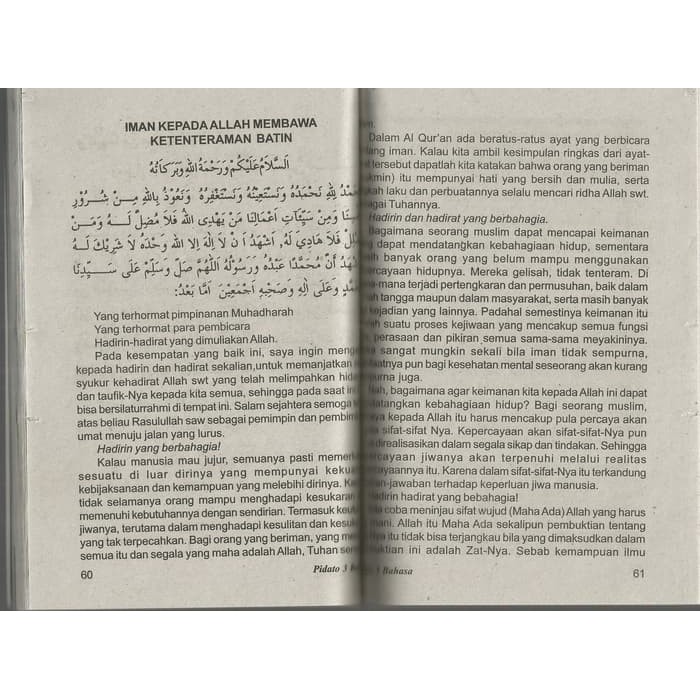 IMAN KEPADA ALLAH MEMBAWA
KETENTERAMAN BATIN
اَلسَّلَامُ عَلَيْكُمْ وَرَحْمَةُ اللهِ وَبَرَكَاتُهُ
لِلّٰهِ نَحْمَدُهُ وَنَسْتَعِيْنُهُ وَنَسْتَغْفِرُهُ وَنَعُوْذُ بِاللهِ مِنْ شُرُوْرِ
وَمِنْ سَيِّئَاتِ اَعْمَالِنَا مَنْ يَهْدِى اللهُ فَلَا مُضِلَّ لَهُ وَمَنْ
فَلَا هَادِيَ لَهُ, اَشْهَدُ اَنْ لَا اِلٰهَ اِلَّا اللهُ وَحْدَهُ لَا شَرِيْكَ لَهُ
اَنَّ مُحَمَّدًا عَبْدُهُ وَرَسُوْلُهُ اَللّٰهُمَّ صَلِّ وَسَلِّمْ عَلَى سَيِّدِنَا
وَعَلَى اٰلِهِ وَصَحْبِهِ اَجْمَعِيْنَ اَمَّا بَعْدُ:
Yang terhormat pimpinanan Muhadharah
Yang terhormat para pembicara
Hadirin-hadirat yang dimuliakan Allah.
Pada kesempatan yang baik ini, saya ingin
kepada hadirin dan hadirat sekalian,untuk memanjatkan
syukur kehadirat Allah swt yang telah melimpahkan
dan taufik-Nya kepada kita semua, sehingga pada saat
bisa bersilaturrahmi di tempat ini. Salam sejahtera semoga
atas beliau Rasulullah saw sebagai pemimpin dan
umat menuju jalan yang lurus.
Hadirin yang berbahagia!
Kalau manusia mau jujur, semuanya pasti
sesuatu di luar dirinya yang mempunyai
kebijaksanaan dan kemampuan yang melebihi dirinya.
tidak selamanya orang mampu menghadapi kesukaran
memenuhi kebutuhannya dengan sendirian. Termasuk
jiwanya, terutama dalam menghadapi kesulitan dan
yang tak terpecahkan. Bagi orang yang beriman, yang
semua itu dan segala yang maha adalah Allah, Tuhan
60
Dalam Al Qur'an ada beratus-ratus ayat yang berbicara
tang iman. Kalau kita ambil kesimpulan ringkas dari ayat-
tersebut dapatlah kita katakan bahwa orang yang beriman
itu mempunyai hati yang bersih dan mulia, serta
laku dan perbuatannya selalu mencari ridha Allah swt.
Tuhannya.
Hadirin dan hadirat yang berbahagia.
Bagaimana seorang muslim dapat mencapai keimanan
dapat mendatangkan kebahagiaan hidup, sementara
banyak orang yang belum mampu menggunakan
hidupnya. Mereka gelisah, tidak tenteram. Di
-mana terjadi pertengkaran dan permusuhan, baik dalam
tangga maupun dalam masyarakat, serta masih banyak
kejadian yang lainnya. Padahal semestinya keimanan itu
suatu proses kejiwaan yang mencakup semua fungsi
perasaan dan pikiran semua sama-sama meyakininya.
sangat mungkin sekali bila iman tidak sempurna,
pun bagi kesehatan mental seseorang akan kurang
juga.
bagaimana agar keimanan kita kepada Allah ini dapat
kebahagiaan hidup? Bagi seorang muslim,
kepada Allah itu harus mencakup pula percaya akan
sifat-sifat Nya. Kepercayaan akan sifat-sifat-Nya pun
direalisasikan dalam segala sikap dan tindakan. Sehingga
jiwanya akan terpenuhi melalui realitas
itu. Karena dalam sifat-sifat-Nya itu terkandung
-jawaban terhadap keperluan jiwa manusia.
Hadirin hadirat yang bebahagia!
coba meninjau sifat wujud (Maha Ada) Allah yang harus
Allah itu Maha Ada sekalipun pembuktian tentang
itu tidak bisa terjangkau bila yang dimaksudkan dalam
ini adalah Zat-Nya. Sebab kemampuan ilmu
Pidato 3 Bahasa
61